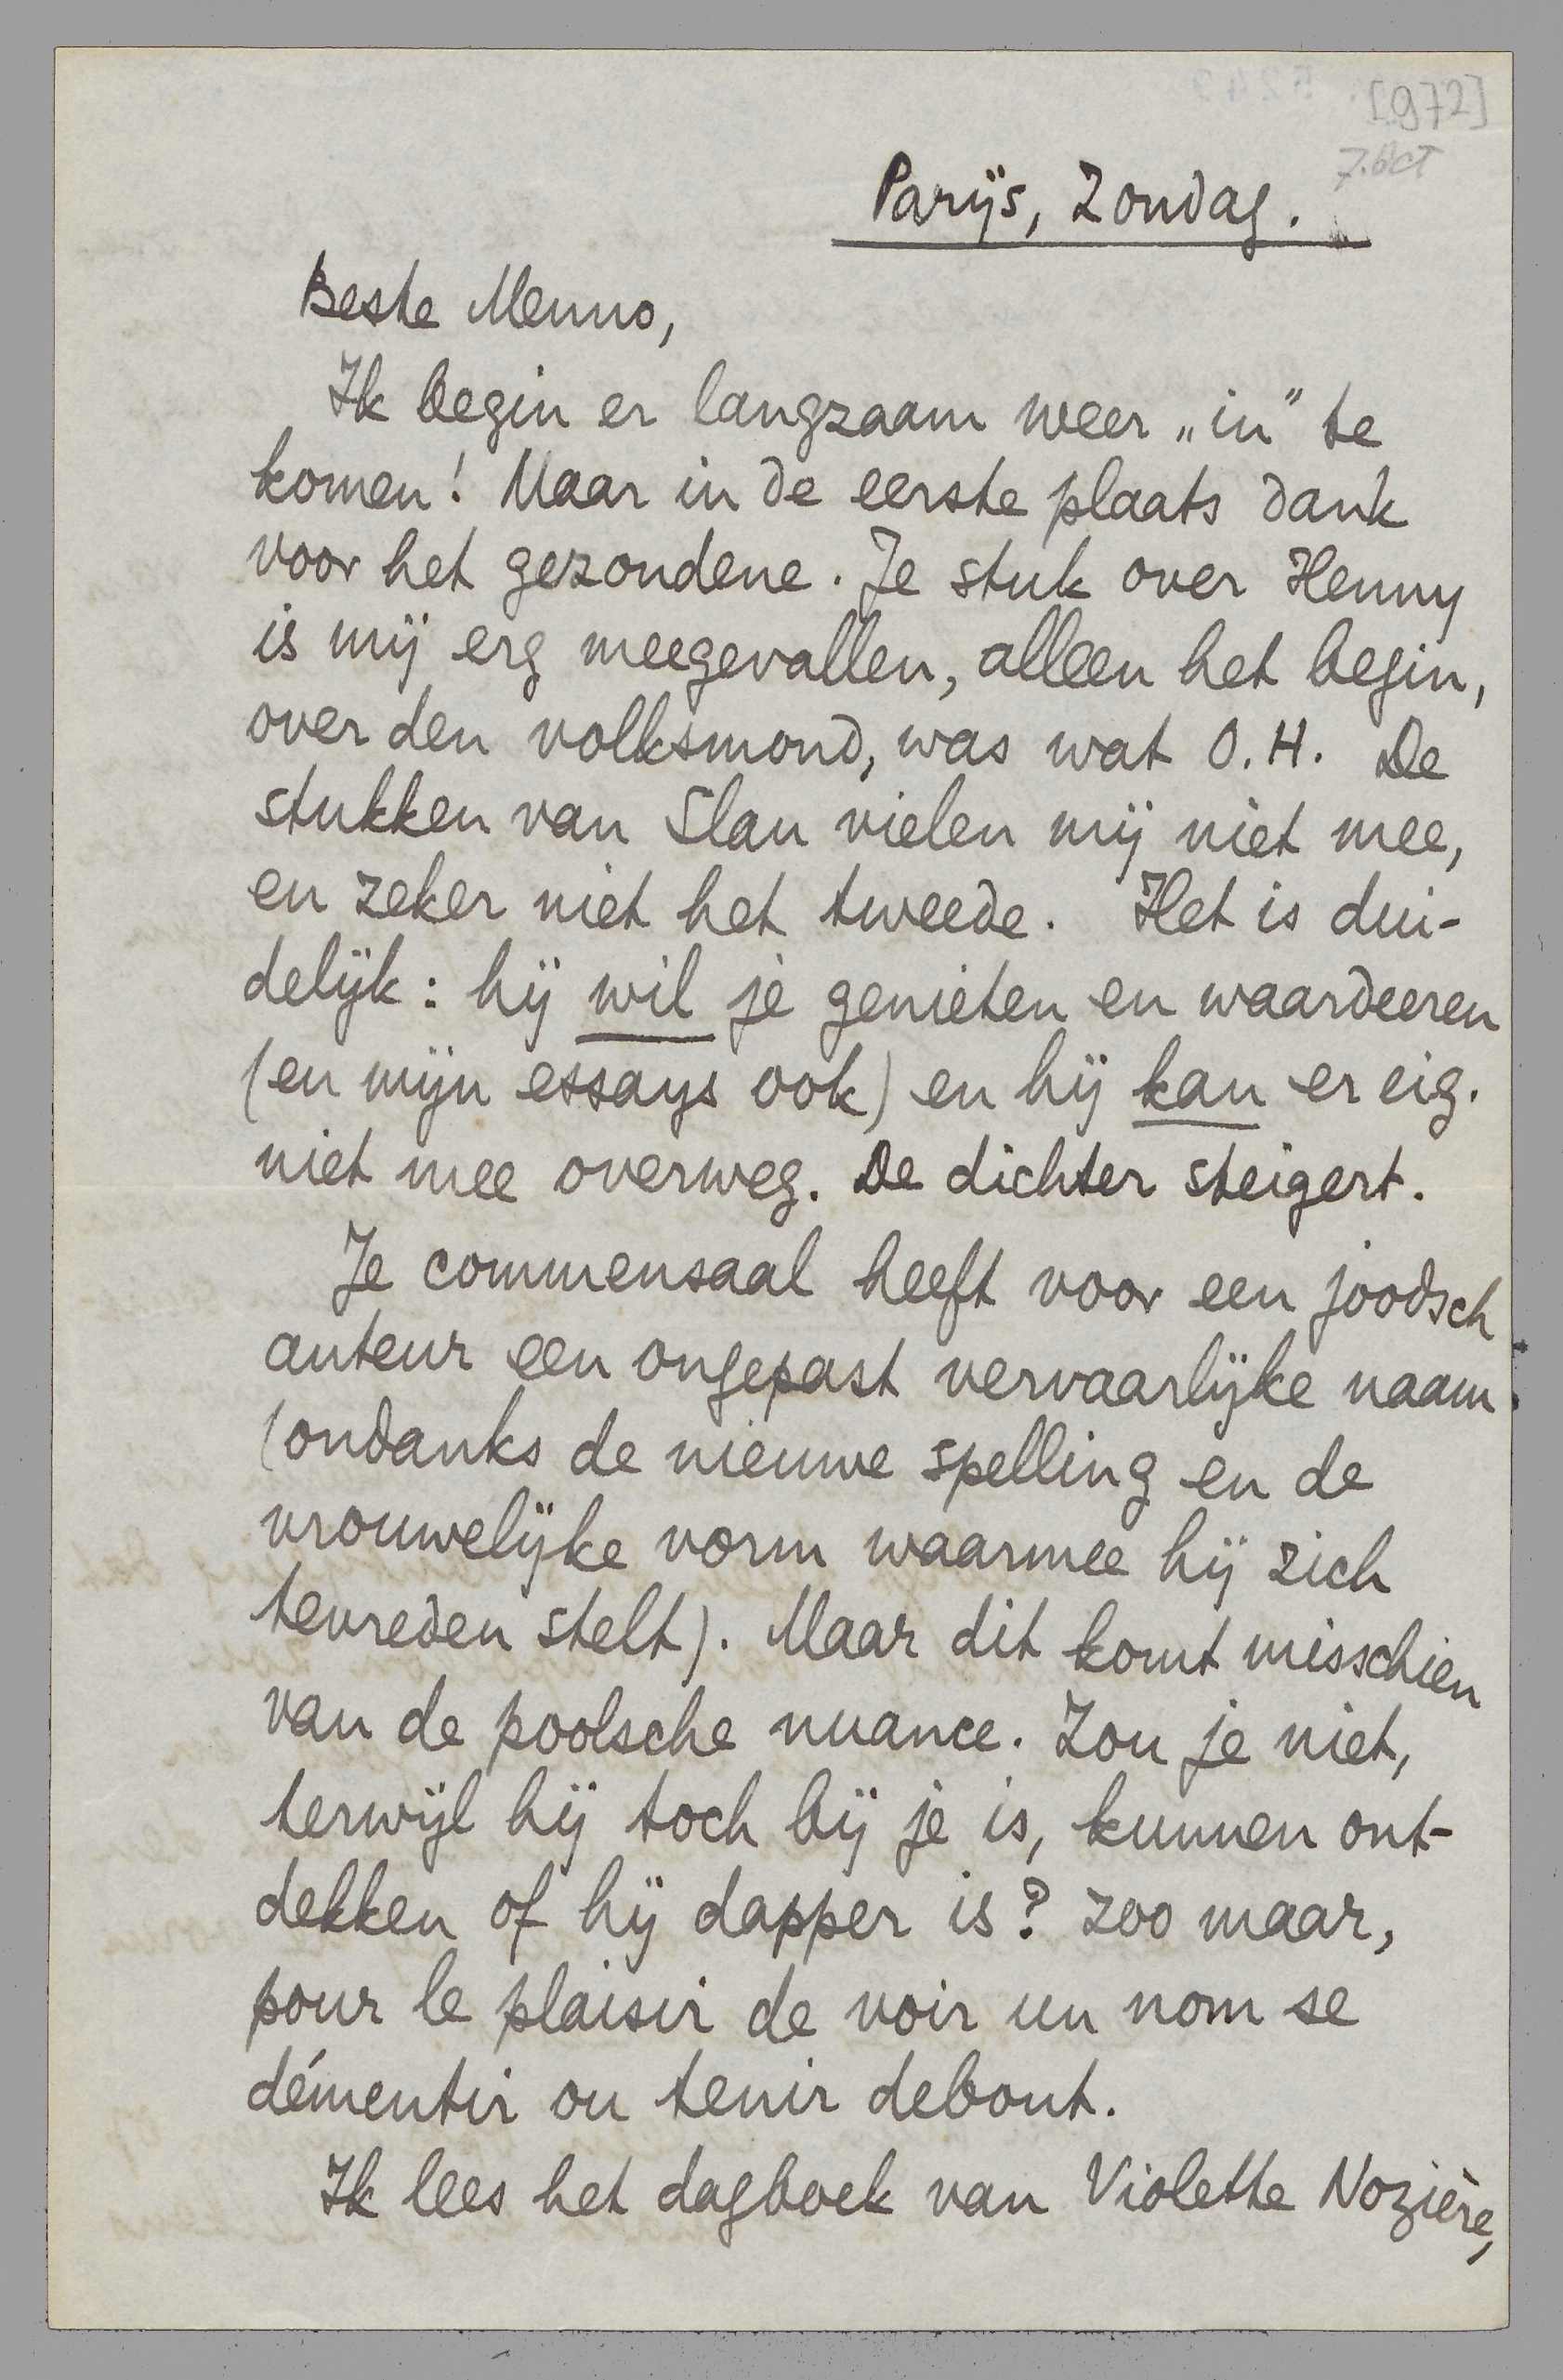 [972]
7.Oct
Parijs, Zondag.
Beste Menno,
Ik begin er langzaam weer „in” te
komen! Maar in de eerste plaats dank
voor het gezondene. Je stuk over Henny
is mij erg meegevallen, alleen het begin,
over den volksmond, was wat O.H. De
stukken van Slau vielen mij niet mee,
en zeker niet het tweede. Het is dui-
delijk: hij wil je genieten en waardeeren
(en mijn essays ook) en hij kan er eig.
niet mee overweg. De dichter steigert.
Je commensaal heeft voor een joodsch
auteur een ongepast vervaarlijke naam
(ondanks de nieuwe spelling en de
vrouwelijke vorm waarmee hij zich
tevreden stelt). Maar dit komt misschien
van de poolsche nuance. Zou je niet,
terwijl hij toch bij je is, kunnen ont-
dekken of hij dapper is? zoo maar,
pour le plaisir de voir un nom se
démentir ou tenir debout.
Ik lees het dagboek van Violette Nozière,